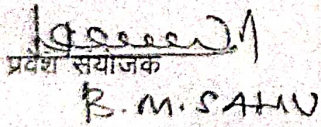 प्रवेश संयोजक
R.M.SAHU